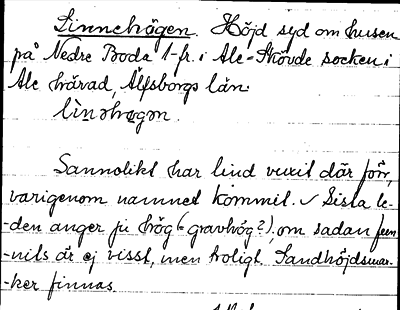 Linnehögen. Höjd syd om husen
på Nedre Boda 1-fr. i Ale-Skövde socken i
Ale härad, Älfsborgs län.
lìnəhøgən.
Sannolikt har lind vuxit där förr,
varigenom namnet kommit. Sista le-
-den anger ju hög (=gravhög?), om sådan fun-
-nits är ej visst, men troligt. Sandhöjdsmar-
-ker finnas.